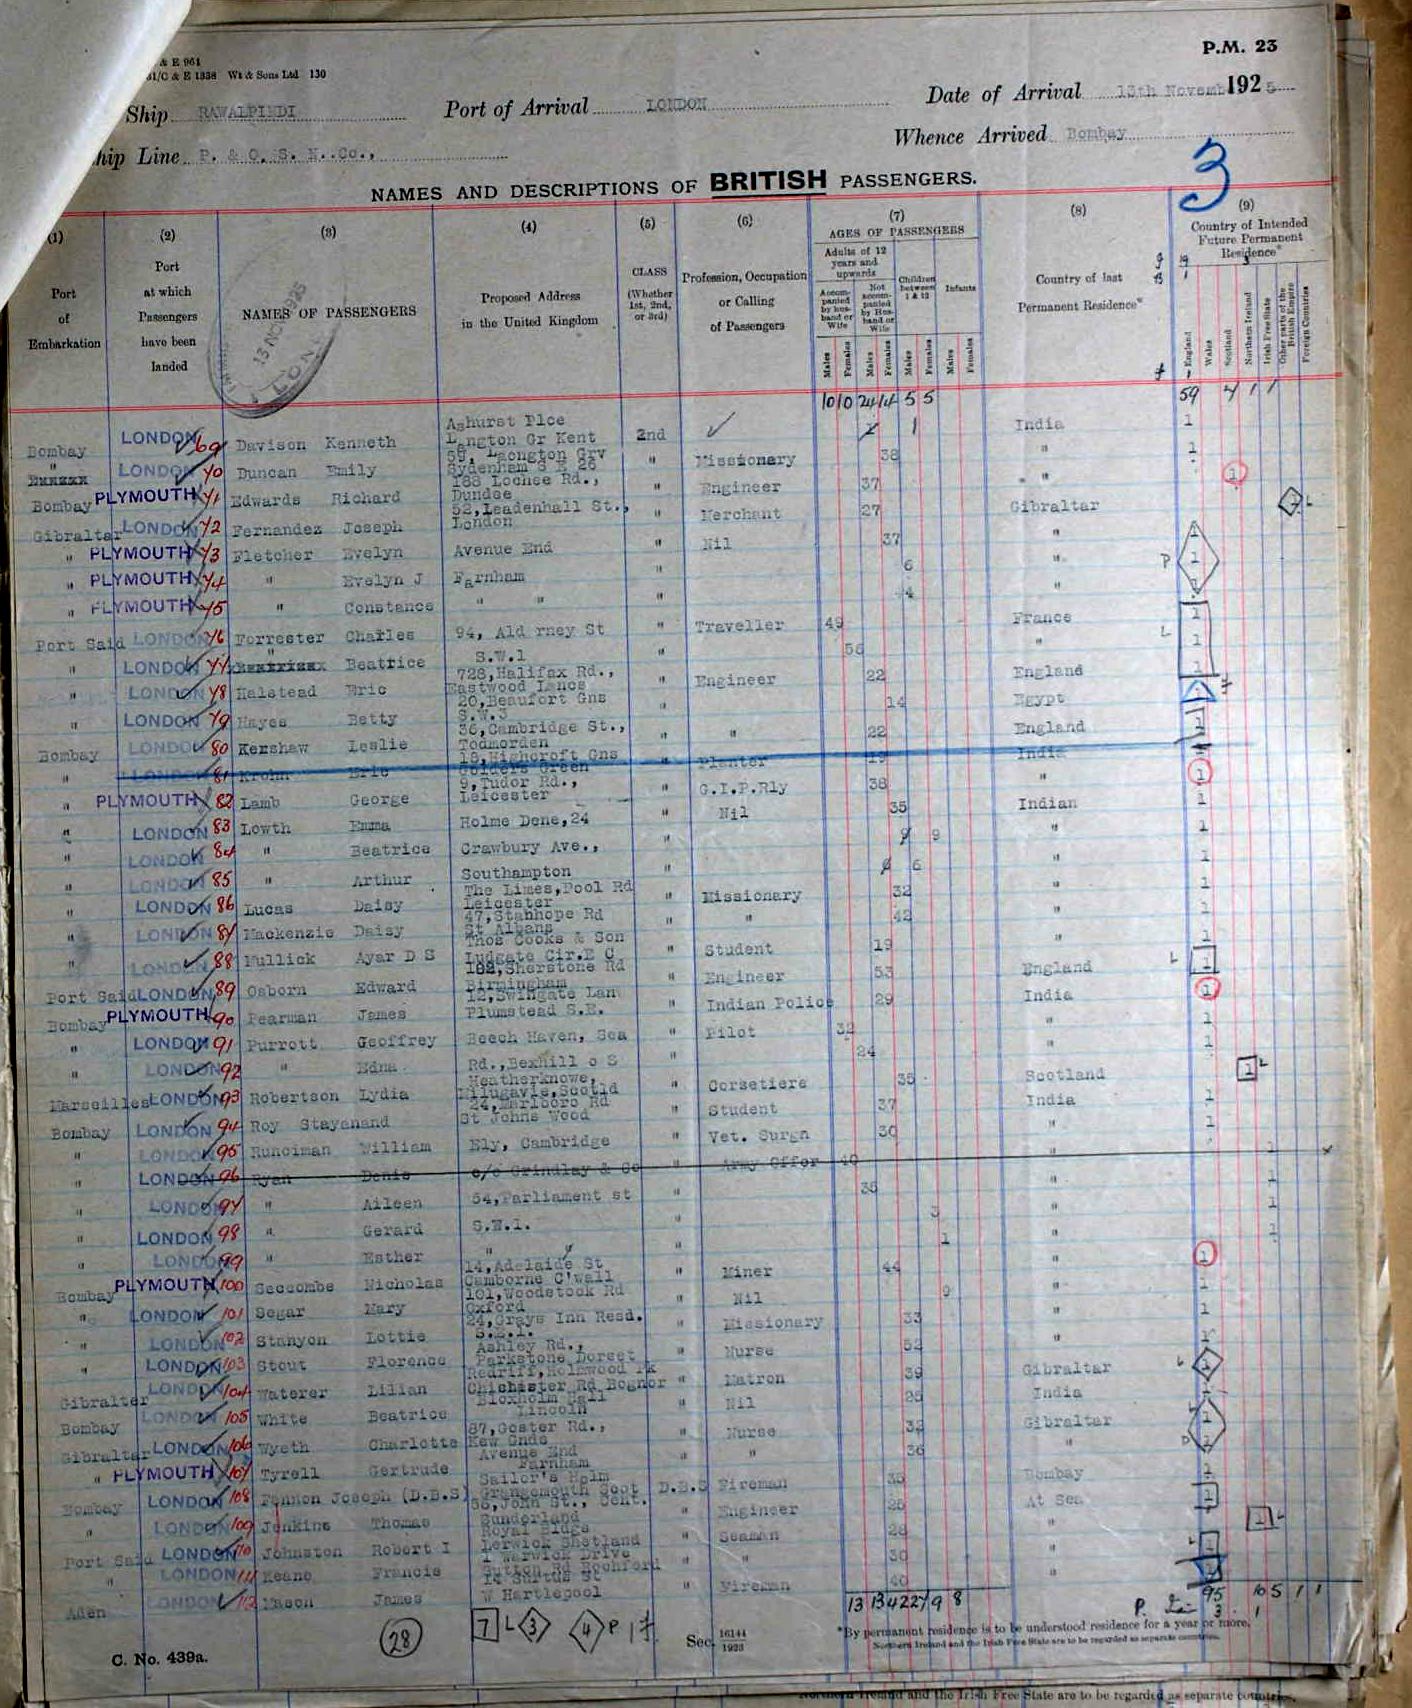 & E 961
31/C & E 1338 Wt & Sons Ltd 130
P.M. 23
Ship RAWALPINDI Port of Arrival LONDON Date of Arrival 13th Novemb 1925
hip Line P. & O. S. N. Co., Whence Arrived Bombay
3
NAMES AND DESCRIPTIONS OF BRITISH PASSENGERS.
(1) Port of Embarkation
(2) Port at which Passengers have been landed
(3) NAMES OF PASSENGERS
(4) Proposed Address in the United Kingdom
(5) CLASS (Whether 1st, 2nd, or 3rd)
(6) Profession, Occupation or Calling of Passengers
(7) AGES OF PASSENGERS
Adults of 12 years and upwards
Accompanied by husband or Wife
Not accompanied by Husband or Wife
Children between 1 & 12
Infants
Males Females Males Females Males Females Males Females
(8) Country of last Permanent Residence*
(9) Country of Intended Future Permanent Residence*
England Wales Scotland Northern Ireland Irish Free State Other parts of the British Empire Foreign Countries
13 NOV 1925
10 10 24 14 5 5 59 4 1 1
Bombay LONDON 69 Davison Kenneth Ashurst Plce Langton Gr Kent 2nd 1 India 1
" LONDON 70 Duncan Emily 59, Laongton Grv Sydenham S E 26 " Missionary 38 " 1
Bombay PLYMOUTH 71 Edwards Richard 188 Lochee Rd., Dundee " Engineer 37 " 1
Gibraltar LONDON 72 Fernandez Joseph 52, Leadenhall St., London " Merchant 27 Gibraltar
" PLYMOUTH 73 Fletcher Evelyn Avenue End " Nil 37 " 1
" PLYMOUTH 74 " Evelyn J Farnham " 6 " 1
" PLYMOUTH 75 " Constance " " 4 " 1
Port Said LONDON 76 Forrester Charles 94, Ald rney St " Traveller 49 France 1
" LONDON 77 " Beatrice S.W.1 " 56 " 1
" LONDON 78 Halstead Eric 728, Halifax Rd., Eastwood Lancs " Engineer 22 England 1
" LONDON 79 Hayes Betty 20, Beaufort Gns S.W.3 " 14 Egypt
Bombay LONDON 80 Kershaw Leslie 36, Cambridge St., Todmorden " " 22 England 1
" LONDON 81 Krohn Eric 19, Highcroft Gns Golders Green " Planter 19 India
" PLYMOUTH 82 Lamb George 9, Tudor Rd., Leicester " G.I.P.Rly 38 " 1
" LONDON 83 Lowth Emma Holme Dene, 24 " Nil 35 Indian 1
" LONDON 84 " Beatrice Crawbury Ave., " 9 " 1
" LONDON 85 " Arthur Southampton " 6 " 1
" LONDON 86 Lucas Daisy The Limes, Pool Rd Leicester " Missionary 32 " 1
" LONDON 87 Mackenzie Daisy 47, Stanhope Rd St Albans " " 42 " 1
" LONDON 88 Mullick Ayar D S Thos Cooks & Son Ludgate Cir. E C " Student 19 " 1
Port Said LONDON 89 Osborn Edward 182, Sherstone Rd Birmingham " Engineer 53 England 1
Bombay PLYMOUTH 90 Pearman James 12, Swingate Lan Plumstead S.E. " Indian Police 29 India 1
" LONDON 91 Purrott Geoffrey Beech Haven, Sea " Pilot 32 " 1
" LONDON 92 " Edna Rd., Bexhill o S " 24 " 1
Marseilles LONDON 93 Robertson Lydia Heatherknowe, Milugavis, Scotld " Corsetiere 36 Scotland 1
Bombay LONDON 94 Roy Stayanand 24, Marlboro Rd St Johns Wood " Student 37 India 1
" LONDON 95 Runciman William Ely, Cambridge " Vet. Surgn 30 " 1
" LONDON 96 Ryan Denis c/o Grindlay & Co " Army Offcr 40 1
" LONDON 97 " Aileen 54, Parliament st " 36 " 1
" LONDON 98 " Gerard S.W.1. " 3 " 1
" LONDON 99 " Esther " " 1 " 1
Bombay PLYMOUTH 100 Seccombe Nicholas 14, Adelaide St Camborne C'wall " Miner 44 " 1
" LONDON 101 Segar Mary 101, Woodstock Rd Oxford " Nil 9 " 1
" LONDON 102 Stanyon Lottie 24, Grays Inn Resd. S.E.1. " Missionary 33 " 1
" LONDON 103 Stout Florence Ashley Rd., Parkstone, Dorset " Nurse 52 " 1
Gibralter LONDON 104 Waterer Lilian Redriff, Holmwood Pk Chichister Rd Bognor " Matron 39 Gibraltar 1
Bombay LONDON 105 White Beatrice Bloxholm Hall Lincoln " Nil 25 India 1
Gibraltar LONDON 106 Wyeth Charlotte 87, Goster Rd., Kew Gnds " Nurse 32 Gibraltar 1
" PLYMOUTH 107 Tyrell Gertrude Avenue End Farnham " " 36 " 1
Bombay LONDON 108 Fannon Joseph (D.B.S) Sailor's Holm Grangemouth Scot D.B.S Fireman 35 Bombay 1
" LONDON 109 Jenkins Thomas 56, John St., Cent. Sunderland " Engineer 25 At Sea 1
Port Said LONDON 110 Johnston Robert I Royal Bldgs Lerwick Shetland " Seaman 28 " 1
" LONDON 111 Keane Francis 1 Warwick Drive Sutton Rd Rochford " " 30 " 1
Aden LONDON 112 Mason James W Hartlepool " Fireman 40 "
13 13 42 27 9 8 95 10 5 1 1
28 7 L 3 4 P
C. No. 439a.
Sec. 16144 1923
*By permanent residence is to be understood residence for a year or more.
Northern Ireland and the Irish Free State are to be regarded as separate countries.
Northern Ireland and the Irish Free State are to be regarded as separate countries.